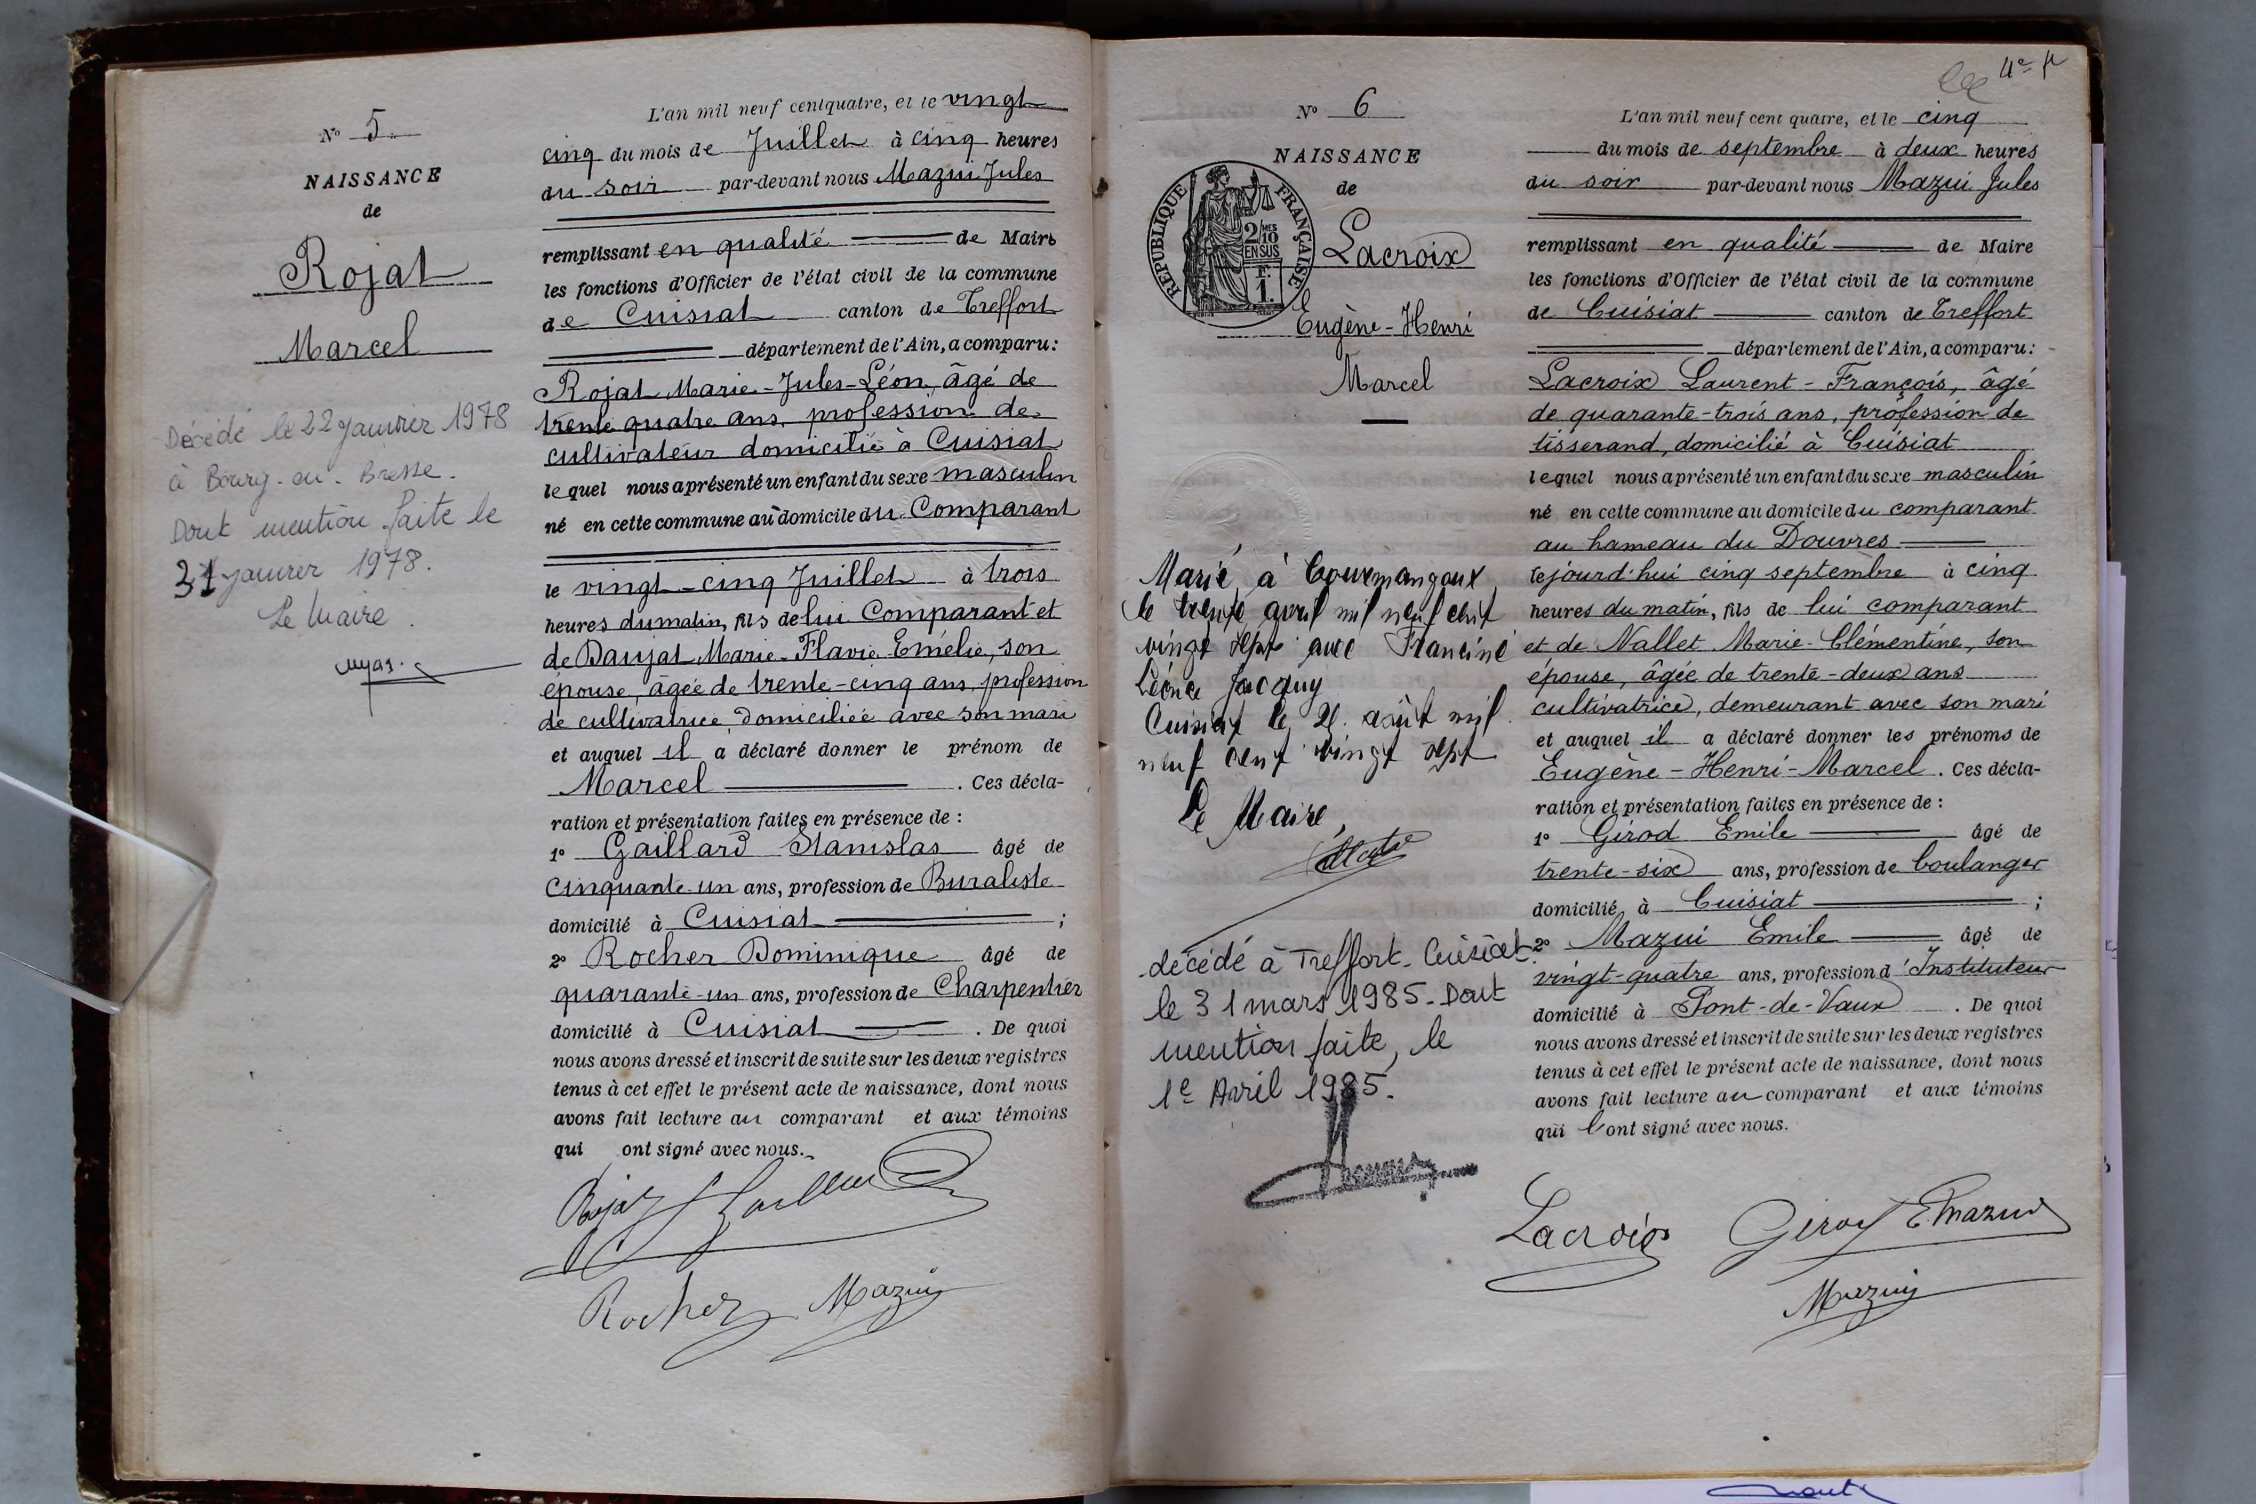 N° 5
NAISSANCE
de
Rojat
Marcel
Décédé le 22 janvier 1978
à Bourg-en-Bresse.
Dont mention faite le
31 janvier 1978.
Le Maire.
L'an mil neuf cent quatre, et le vingt
cinq du mois de Juillet à cinq heures
du soir par-devant nous Mazui Jules
remplissant en qualité de Maire
les fonctions d'Officier de l'état civil de la commune
de Cuisiat canton de Treffort
département de l'Ain, a comparu:
Rojat Marie-Jules-Léon, âgé de
trente quatre ans, profession de
cultivateur domicilié à Cuisiat
lequel nous a présenté un enfant du sexe masculin
né en cette commune au domicile du Comparant
le vingt-cinq Juillet à trois
heures du matin, fils de lui Comparant et
de Daujat Marie-Flavie Emélie, son
épouse, âgée de trente-cinq ans, profession
de cultivatrice domiciliée avec son mari
et auquel il a déclaré donner le prénom de
Marcel . Ces décla-
ration et présentation faites en présence de :
1° Gaillard Stanislas âgé de
cinquante-un ans, profession de Buraliste
domicilié à Cuisiat ;
2° Rocher Dominique âgé de
quarante-un ans, profession de Charpentier
domicilié à Cuisiat . De quoi
nous avons dressé et inscrit de suite sur les deux registres
tenus à cet effet le présent acte de naissance, dont nous
avons fait lecture au comparant et aux témoins
qui ont signé avec nous.
Rojat Gaillard
Rocher Mazui
4e
N° 6
NAISSANCE
de
RÉPUBLIQUE FRANÇAISE
2/10 MES
EN SUS
1 F.
Lacroix
Eugène-Henri
Marcel
Marié à Courmangoux
le trente avril mil neuf cent
vingt sept avec Francine
Léonce Jacquy
Cuisiat le 2 août mil
neuf cent vingt sept
Le Maire,
décédé à Treffort-Cuisiat
le 31 mars 1985. Dont
mention faite, le
1e Avril 1985.
L'an mil neuf cent quatre, et le cinq
du mois de septembre à deux heures
du soir par-devant nous Mazui Jules
remplissant en qualité de Maire
les fonctions d'Officier de l'état civil de la commune
de Cuisiat canton de Treffort
département de l'Ain, a comparu:
Lacroix Laurent-François, âgé
de quarante-trois ans, profession de
tisserand, domicilié à Cuisiat
lequel nous a présenté un enfant du sexe masculin
né en cette commune au domicile du comparant
au hameau du Douvres
le jourd'hui cinq septembre à cinq
heures du matin, fils de lui comparant
et de Nallet Marie-Clémentine, son
épouse, âgée de trente-deux ans
cultivatrice, demeurant avec son mari
et auquel il a déclaré donner les prénoms de
Eugène-Henri-Marcel . Ces décla-
ration et présentation faites en présence de :
1° Girod Emile âgé de
trente-six ans, profession de boulanger
domicilié à Cuisiat ;
2° Mazui Emile âgé de
vingt-quatre ans, profession d'Instituteur
domicilié à Pont-de-Vaux . De quoi
nous avons dressé et inscrit de suite sur les deux registres
tenus à cet effet le présent acte de naissance, dont nous
avons fait lecture au comparant et aux témoins
qui l'ont signé avec nous.
Lacroix Girod E. Mazui
Mazui